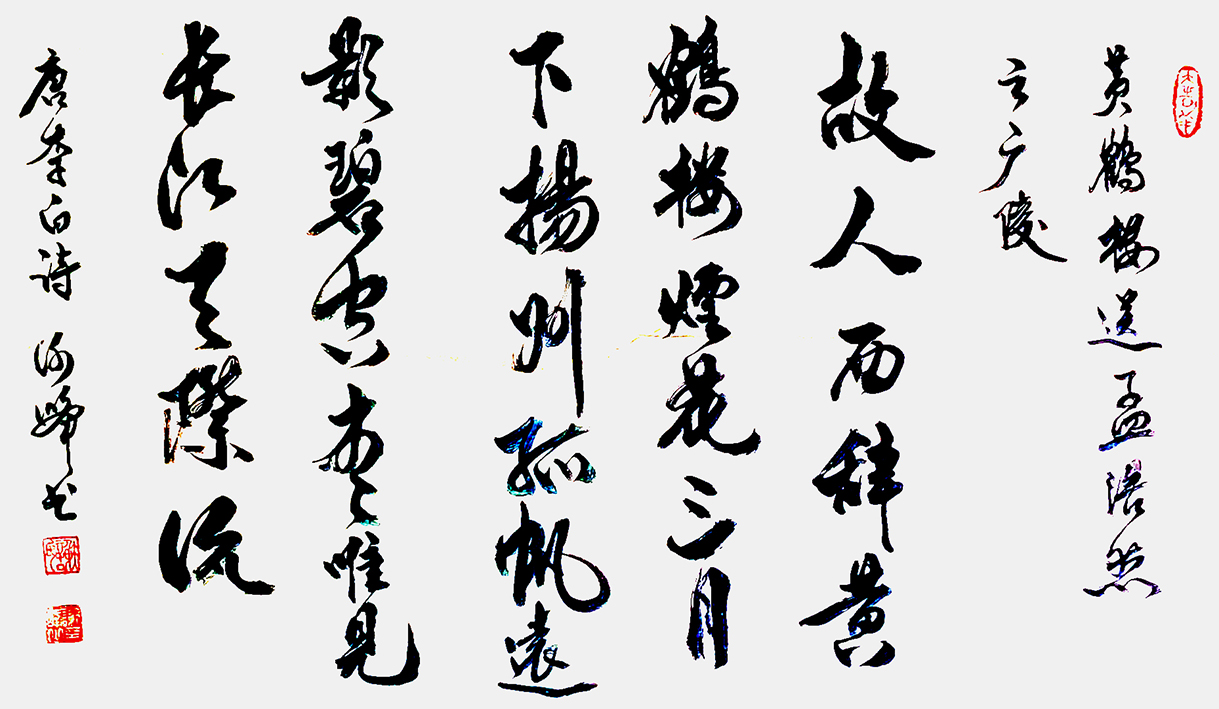 黄鶴楼送孟浩然
之广陵
故人西辞黄
鶴楼煙花三月
下揚州孤帆遠
影碧空尽唯见
长江天際流
唐李白诗 书